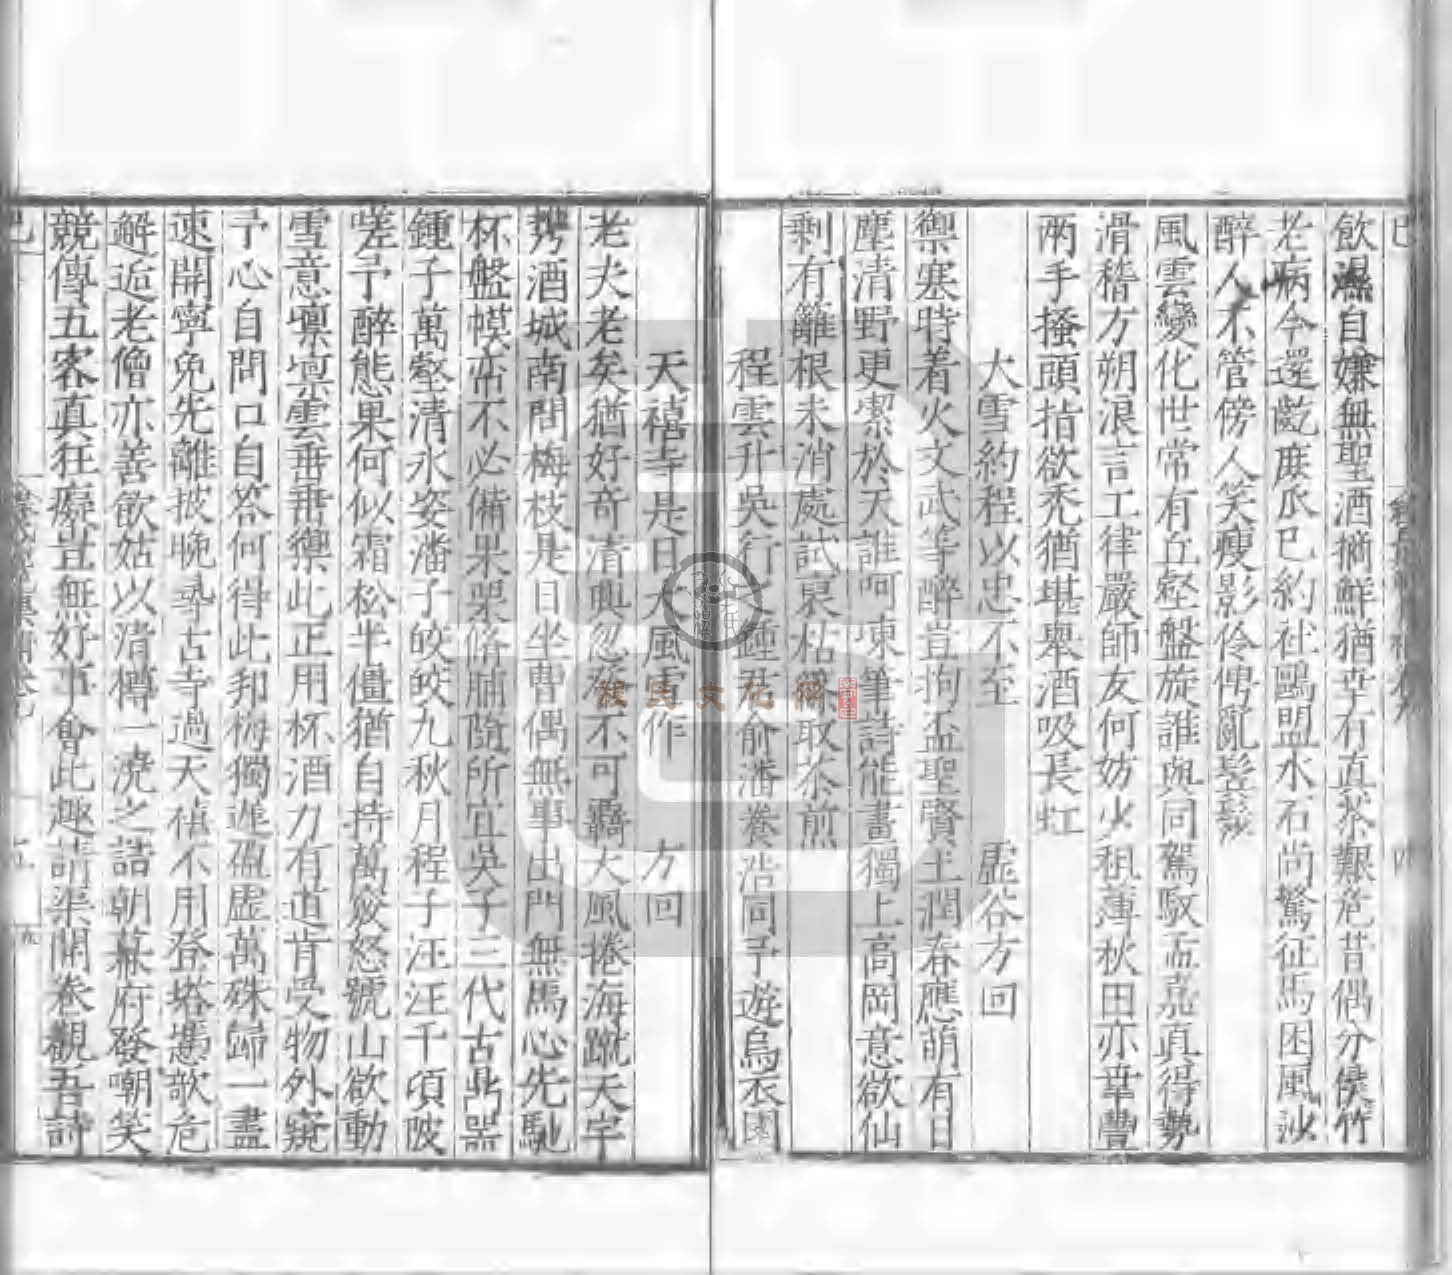 飲濕自嫌無聖酒摘鮮猶幸有真茶艱危昔偶分侯竹
老病今還齕庶瓜已約社鷗盟水石尚驚征馬困風沙
醉人不管傍人笑瘦影伶俜亂髮髿
風雲變化世常有丘壑盤旋誰與同駕馭孟嘉真得勢
滑稽方朔浪言工律嚴師友何妨少租薄秋田亦幸豐
兩手搔頭指欲禿猶堪舉酒吸長虹
大雪約程以忠不至　虛谷方回
禦塞時着火文武等醉豈拘盃聖賢土潤春應萌有日
塵清野更潔於天誰呵凍筆詩能畫獨上高岡意欲仙
剩有籬根未消處試裹枯 取茶煎
程雲升吳行 鍾 俞潘養浩同予遊烏衣園
天禧寺是日大風雪作　方回
老夫老矣猶好奇清興忽 不可羈大風捲海蹴天宇
携酒城南問梅枝是日坐曹偶無事出門無馬心先馳
杯盤幙帟不必備果栗脩脯隨所宜吳子三代古鼎器
鍾子萬壑清氷姿潘子皎皎九秋月程子汪汪千頃陂
嗟予醉態果何似霜松半僵猶自持萬竅怒號山欲動
雪意凜凜雲垂垂禦此正用杯酒力有道肯受物外窺
予心自問口自答何得此邦梅獨遲盈虛萬硃歸一盡
速開寧免先離披晚尋古寺過天禧不用登塔憑欹危
解逅老僧亦善飲姑以清樽一澆之詰朝幕府發嘲笑
競傳五客真狂癡豈無好事會此趣請渠開卷觀吾詩